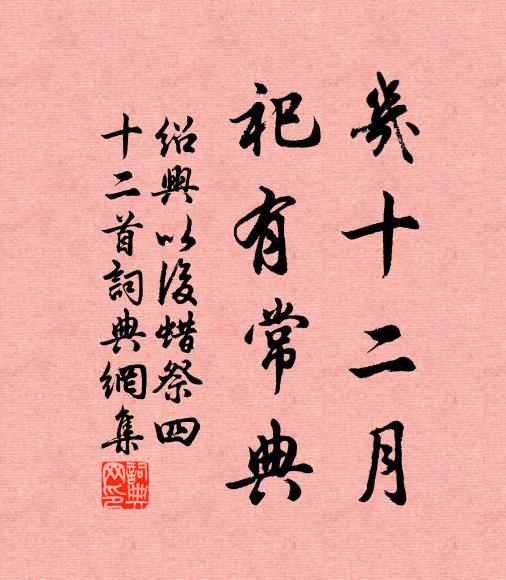 幾十二月
祀有常典
紹興以後蜡祭四
十二首詞典網集
詞典
网印